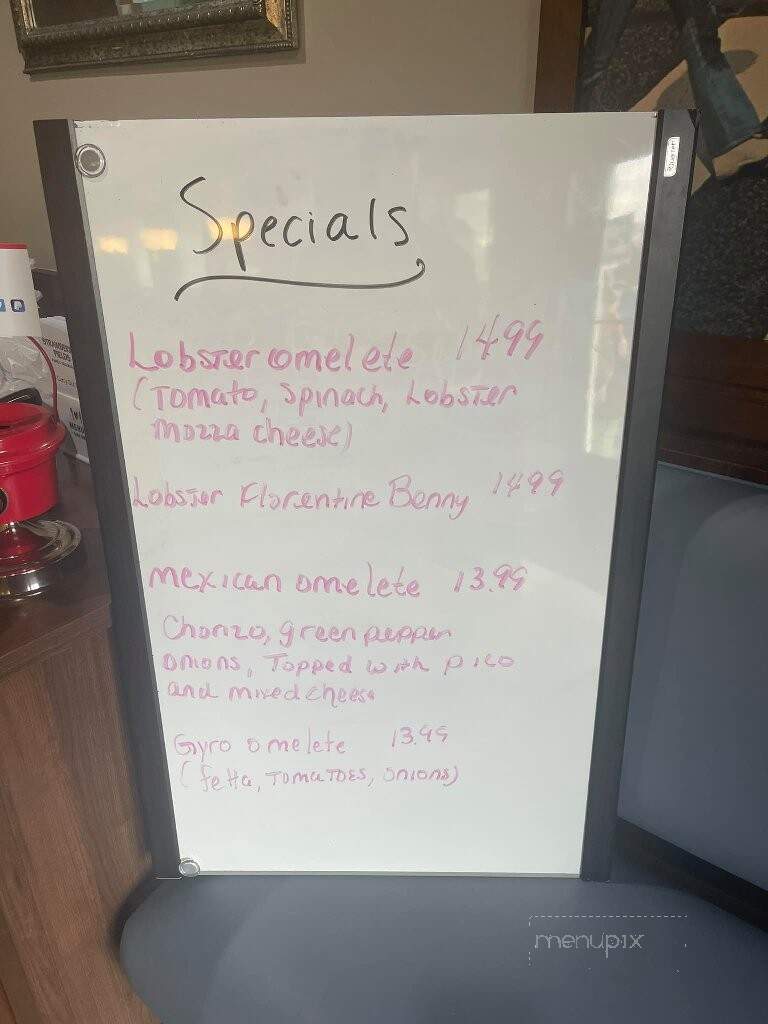 Specials
Lobster omelete 1499
(Tomato, Spinach, Lobster
mozza cheese)
Lobster Florentine Benny 1499
mexican omelete 13.99
Chorizo, green pepper
onions, Topped with pico
and mixed cheese
Gyro omelete 13.99
(fetta, TOMATOES, onions)
STRAWBERRY
FIELDS
menupix